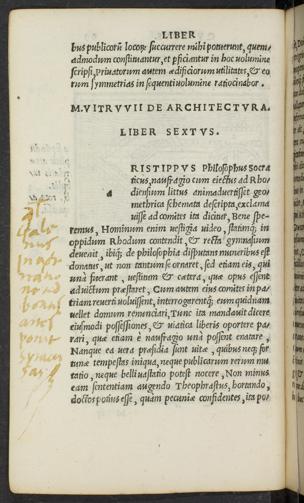 LIBER
bus publicorũ locorũ succurrere mihi potuerunt, quem
admodum constituantur, et pficiantur in hoc uolumine
scripsi, priuatorum autem ædificiorum utilitates, & eo
rum symmetrias in sequenti uolumine ratiocinabor.
M. VITRVVII DE ARCHITECTVRA
LIBER SEXTVS.
a
RISTIPPVS Philosophus Socra
ticus, naufragio cum eiectus ad Rho
diensium littus animaduertisset geo
methrica schemata descripta, exclama
uisse ad comites ita dicitur, Bene spe
remus, Hominum enim uestigia uideo, statimq; in
oppidum Rhodum contendit, & recta gymnasium
deuenit, ibiq; de philosophia disputans muneribus est
donatus, ut non tantum se ornaret, sed etiam eis, qui
unà fuerunt, uestitum & cætera, quæ opus essent
ad uictum præstaret, Cum autem eius comites in pa-
triam reuerti uoluissent, interrogarentq; eum quidnam
uellet domum renunciari, Tunc ita mandauit dicere
eiusmodi possessiones, & uiatica liberis oportere pa-
rari, quæ etiam è naufragio unà possent enatare,
Nanque ea uera præsidia sunt uitæ, quibus neq; for
tunæ tempestas iniqua, neque publicarum rerum mu
tatio, neque belli uastatio potest nocere, Non minus
eam sententiam augendo Theophrastus, hortando,
doctos potius esse, quàm pecuniæ confidentes, ita po-